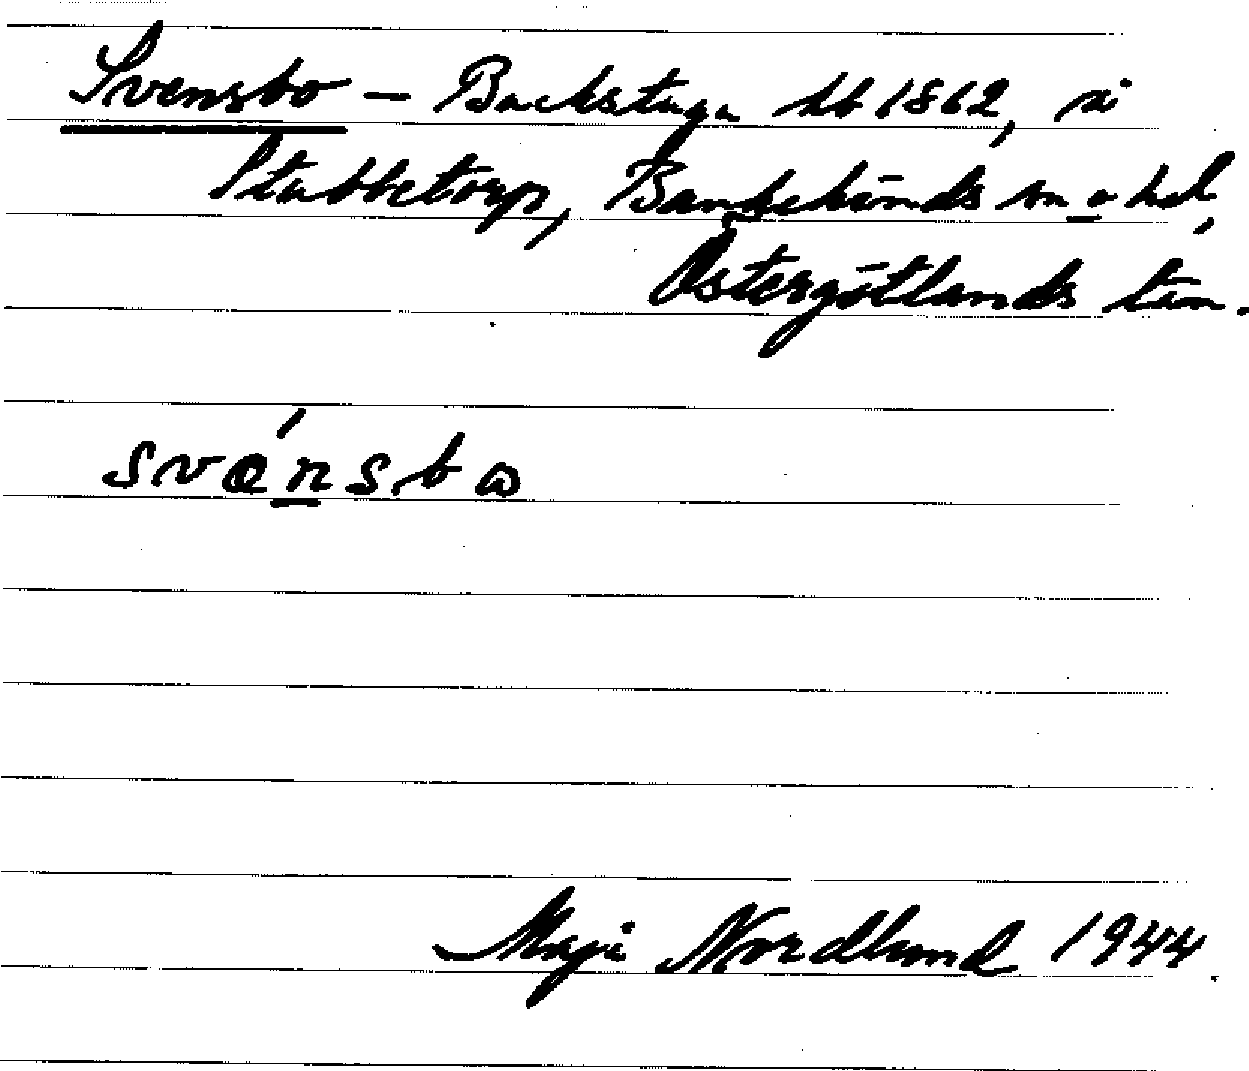 Svensbo — Backstuga hb 1862, å
Stubbetorp, Bankekinds sn o hd,
Östergötlands län.
svénsbω
Maja Nordlund 1944.